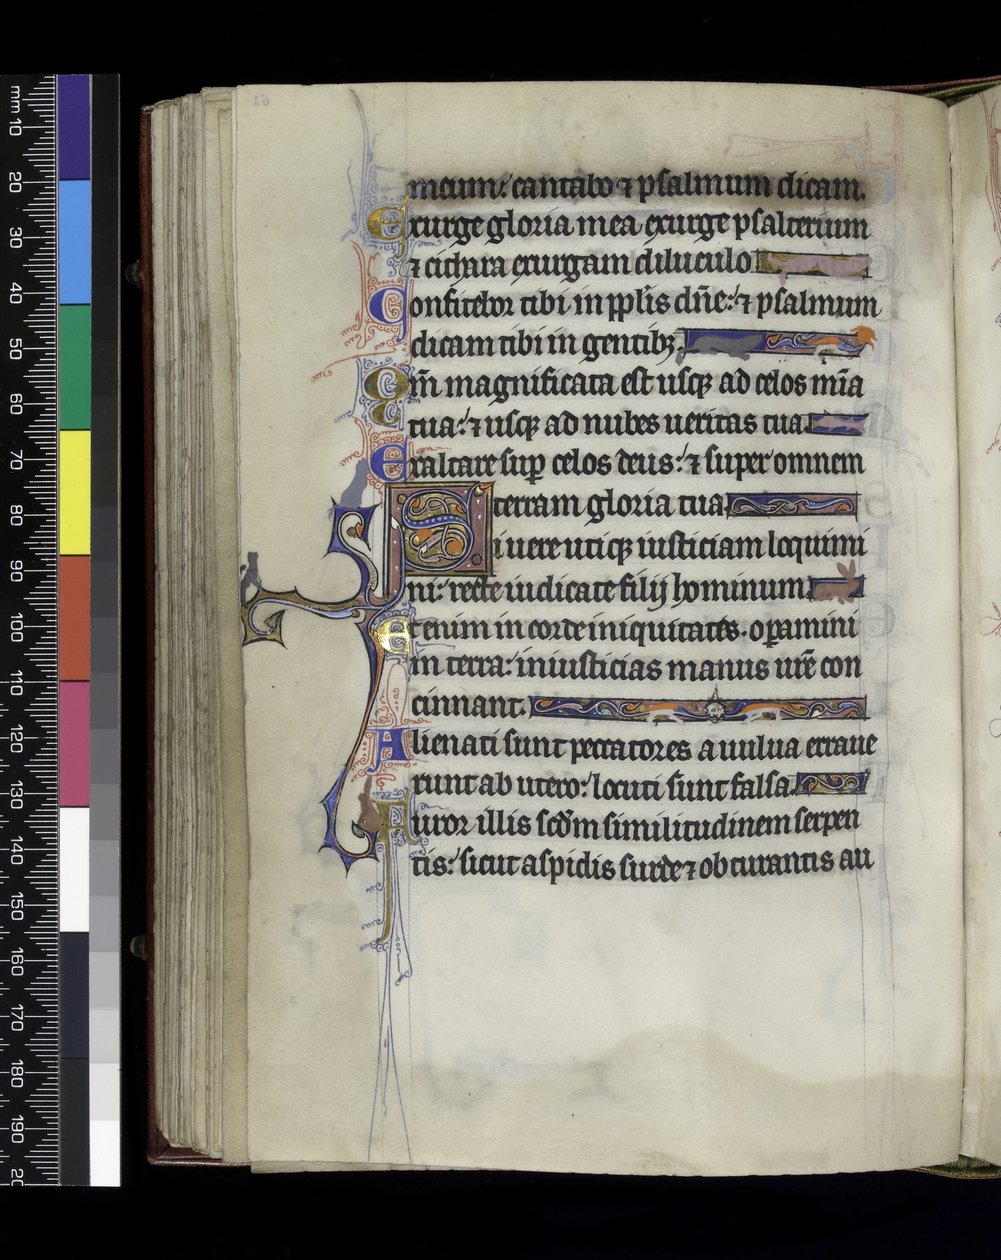 meum: cantabo ⁊ psalmum dicam.
Exurge gloria mea exurge psalterium
⁊ cithara exurgam diluculo
Confitebor tibi in pplis dñe: ⁊ psalmum
dicam tibi in gentibꝫ.
Qm̃ magnificata est usqꝫ ad celos mĩa
tua: ⁊ usqꝫ ad nubes ueritas tua.
Exaltare suꝑ celos deus: ⁊ super omnem
terram gloria tua
Si uere utiqꝫ iusticiam loquimi
ni: recte iudicate filij hominum
Etenim in corde iniquitates. oꝑamini
in terra: iniusticias manus ur̃e con
cinnant.
Alienati sunt peccatores a uulua erraue
runt ab utero: locuti sunt falsa.
Furor illis scd̃m similitudinem serpen
tis: sicut aspidis surde ⁊ obturantis au
mm 10
20
30
40
50
60
70
80
90
100
110
120
130
140
150
160
170
180
190